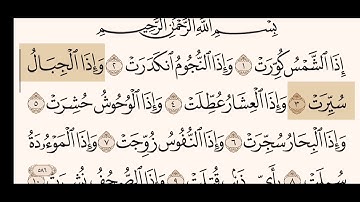 بِسْمِ اللَّهِ الرَّحْمَٰنِ الرَّحِيمِ
إِذَا ٱلشَّمْسُ كُوِّرَتْ ١ وَإِذَا ٱلنُّجُومُ ٱنكَدَرَتْ ٢ وَإِذَا ٱلْجِبَالُ
سُيِّرَتْ ٣ وَإِذَا ٱلْعِشَارُ عُطِّلَتْ ٤ وَإِذَا ٱلْوُحُوشُ حُشِرَتْ ٥
وَإِذَا ٱلْبِحَارُ سُجِّرَتْ ٦ وَإِذَا ٱلنُّفُوسُ زُوِّجَتْ ٧ وَإِذَا ٱلْمَوْءُۥدَةُ
سُئِلَتْ ٨ بِأَيِّ ذَنۢبٍ قُتِلَتْ ٩ وَإِذَا ٱلصُّحُفُ نُشِرَتْ ١٠
٥٨٦